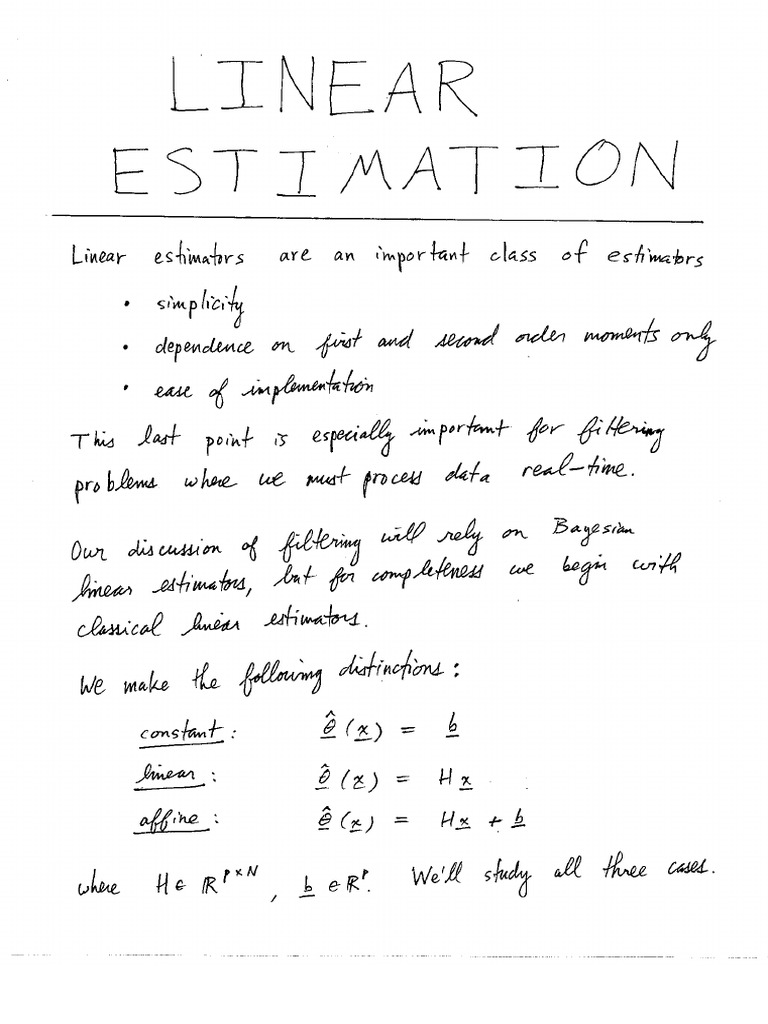 LINEAR
ESTIMATION
Linear estimators are an important class of estimators
• simplicity
• dependence on first and second order moments only
• ease of implementation
This last point is especially important for filtering
problems where we must process data real-time.
Our discussion of filtering will rely on Bayesian
linear estimators, but for completeness we begin with
classical linear estimators.
We make the following distinctions:
constant: θ̂(x) = b
linear: θ̂(x) = Hx
affine: θ̂(x) = Hx + b
where H ∈ ℝ^{p×N}, b ∈ ℝ^p. We'll study all three cases.